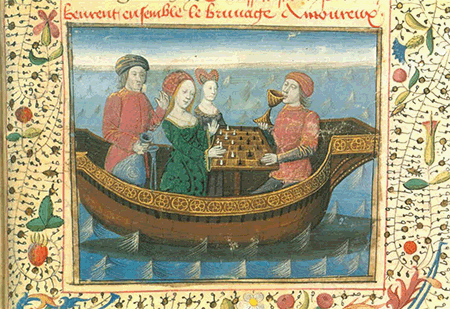 beurent ensemble le bruuage Amoureux